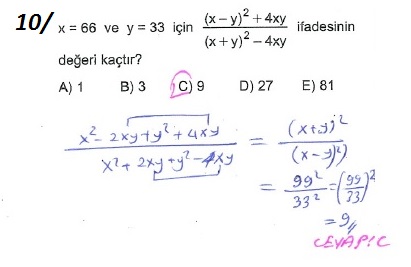 10/ x = 66 ve y = 33 için (x – y)² + 4xy / (x + y)² – 4xy ifadesinin
değeri kaçtır?
A) 1 B) 3 C) 9 D) 27 E) 81
x² - 2xy + y² + 4xy / x² + 2xy + y² - 4xy = (x+y)² / (x-y)²)
= 99² / 33² = (99/33)²
= 9,,
CEVAP: C